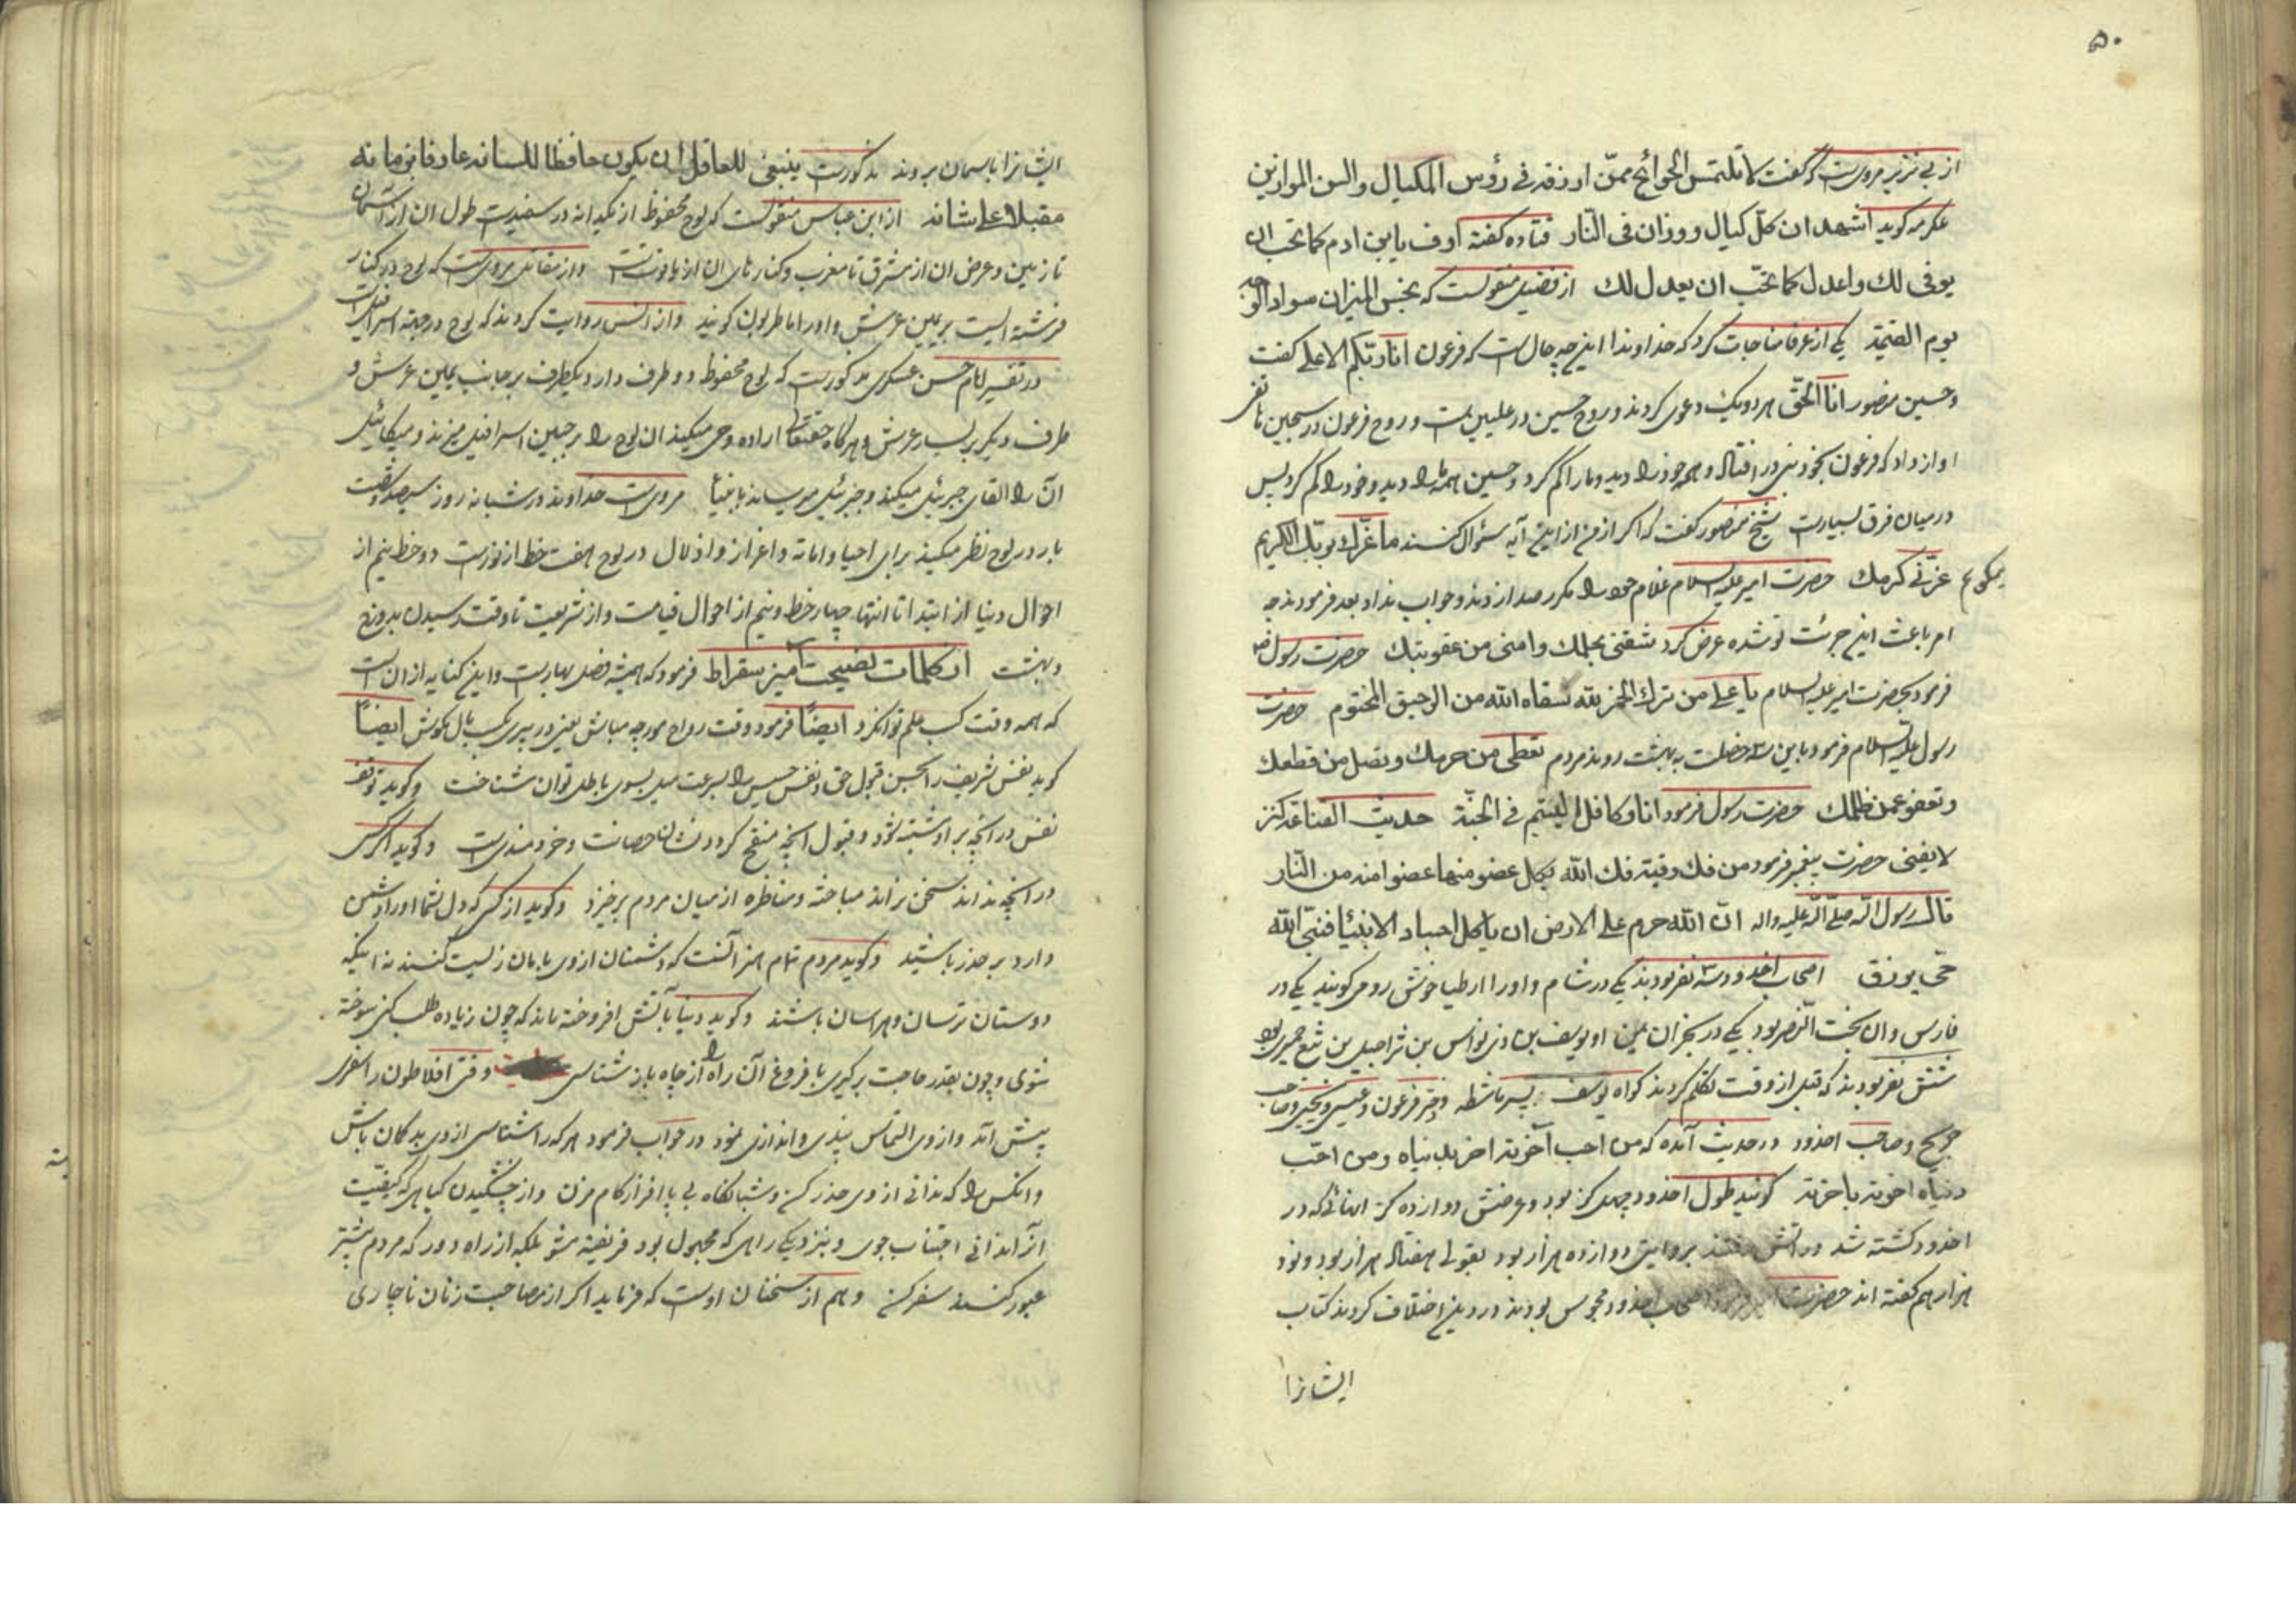 ۵۰
از بی نزیر مرویست که گفت لا تلتمس الحوائج ممّن ارزقه فی رؤس المکیال والسن الموازین
عکرمه کوید اشهد ان کلّ کیال ووزان فی النّار قتاده کفته اوف یا ابن ادم کما تحب ان
یوفی لك واعدل کما تحبّ ان یعدل لك از فضیل منقولست که بخس المیزان سواد الوجه
یوم القیٰمة یکی از عرفا مناجات کرد که خداوندا این چه حال است که فرعون انا ربّکم الاعلی کفت
وحسین منصور انا الحقّ هر دو یك دعوی کردند و روح حسین در علیین است و روح فرعون در سجین هاتفی
اواز داد که فرعون بخودبینی در افتاد و همه خود را دید و ما را کم کرد و حسین همه ما را دید و خود را کم کرد پس
در میان فرق بسیارست شیخ منصور کفت که اکر از من از این آیه سؤال کنند ما غرّك بربّك الکریم
میکویم غرّنی کرمك حضرت امیر علیه السلام غلام خود را مکرر صدا زدند و جواب نداد بعد فرمودند چه
امر باعث این جرئت تو شده عرض کرد شقتی بحلمك وامنی من عقوبتك حضرت رسول ص
فرمود بحضرت امیر علیه السلام یا علی من ترك الخمر لله سقاه الله من الرحیق المختوم حضرت
رسول علیه السلام فرمود باین سه خصلت به بهشت روند مردم تعطی من حرمك وتصل من قطعك
وتعفو عمن ظلمك حضرت رسول فرمود انا وکافل الیتیم فی الجنّة حدیث القناعة کنز
لا یفنی حضرت پیغمبر فرمود من فك رقبة فك الله بکل عضو منها عضوا منه من النّار
قال رسول الله صلّی الله علیه واله انّ الله حرم علی الارض ان یاکل اجساد الانبیٰا فنبیّ الله
حّی یرزق اصحاب اخدود سه نفر بودند یکی در شام و او را ارطیاخوش رومی کویند یکی در
فارس و ان بخت النّصر بود یکی در بحران یمن او یوسف بن ذی نواس بن شراحیل بن تبع حمیری بود
شش نفر بودند که قبل از وقت تکلم کردند کواه یوسف پسر ماشطه دختر فرعون و عیسی و یحیی و صاحب
جریح و صاحب اخدود در حدیث آمده که من احب آخرته اضر بدنیاه و من احّب
دنیاه اضر باخرته کویند طول اخدود چهل کز بود و عرضش دوازده کز انهائی که در
اخدود کشته شد در اتش رفتند بروایتی دوازده هزار بود بقولی هفتاد هزار بود و نود
هزار هم کفته اند حضرت امیر فرمود اصحاب اخدود مجوس بودند در دین اختلاف کردند کتاب
ایشانرا
ایشانرا باسمان بردند مذکورست ینبغی للعاقل ان یکون حافظا للسانه عارفا بزمانه
مقبلا علی شانه از ابن عباس منقولست که لوح محفوظ از یکدانه در سفیدست طول ان از اسمان
تا زمین و عرض ان از مشرق تا مغرب و کنارهای ان از یاقوتست و از مقاتل مرویست که لوح در کنار
فرشته ایست بر یمین عرش و او را ماطریون کویند و از انس روایت کردند که لوح در جبهه اسرافیل است
در تفسیر امام حسن عسکری مذکورست که لوح محفوظ دو طرف دارد یکطرف بر جانب یمین عرش و
طرف دیکر بر یسار عرش و هر کاه حقتعالی اراده وحی میکند ان لوح را بر جبین اسرافیل میزند و میکائیل
انّ را القای جبرئیل میکند و جبرئیل میرساند بانبیٰا مرویست خداوند در شبانه روز سیصد و شصت
بار در لوح نظر میکند برای احیا و اماته و اعزاز و اذلال در لوح هفت خط از نورست دو خط نیم از
احوال دنیا از ابتدا تا انتها چهار خط و نیم از احوال قیامت و از شریعت تا وقت رسیدن بدوزخ
و بهشت از کلمات نصیحت آمیز سقراط فرمود که همیشه فصل بهارست و این کنایه از ان است
که همه وقت کسب علم توانکرد ایضًا فرمود وقت رواح مورچه مباش یعنی در پیری بکسب مال مکوش ایضًا
کوید نفس شریف را بحسن قبول حق و نفس خسیس را بسرعت میل بسوی باطل توان شناخت و کوید توقف
نفس در انچه بر او مشتبه شود و قبول انچه منقح کردد نشان حصانت و خردمندیست و کوید اکر کسی
در انچه نداند سخن نراند مباحثه و مناظره از میان مردم برخیزد و کوید از کسی که دل شما او را دشمن
دارد بر حذر باشید و کوید مردم تمام هنر آنست که دشمنان از وی بامان زیست کنند نه اینکه
دوستان ترسان و هراسان باشند و کوید دنیا بآتش افروخته ماند که چون زیاده طلب کنی سوخته
شوی و چون بقدر حاجت برکیری با فروغ آن راه را از چاه باز شناسی وقتی افلاطون را سفری
پیش آمد و از وی التماس پندی و اندرزی نمود در جواب فرمود هر که را شناسی از وی بد کمان باش
و انکس را که ندانی از وی حذر کن و شبانکاه بی پا افزار کام مزن و از چشیدن کیاهی که کیفیت
انرا ندانی اجتناب جوی و بنزدیکی راهی که مجهول بود فریفته مشو بلکه از راه دور که مردم بیشتر
عبور کنند سفر کن و هم از سخنان اوست که فرماید اکر از مصاحبت زنان ناچاری